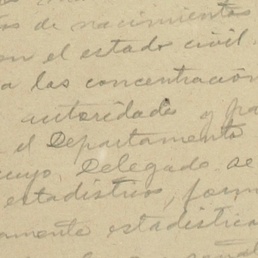 os de nacimientos
on el estado civil.
a las concentración
autoridades y pa
el Departamento
cuyo, Delegado se
estadistico, form
amente estadistica